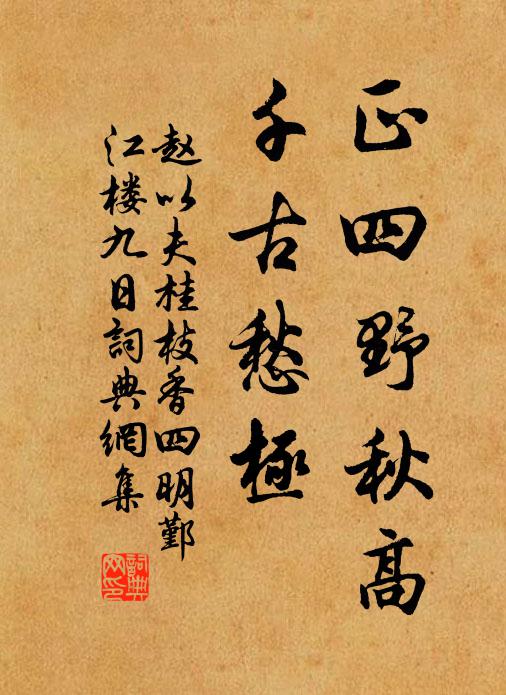 正四野秋高
千古愁極
赵以夫桂枝香四明鄞
江楼九日詞典網集
詞典
网印